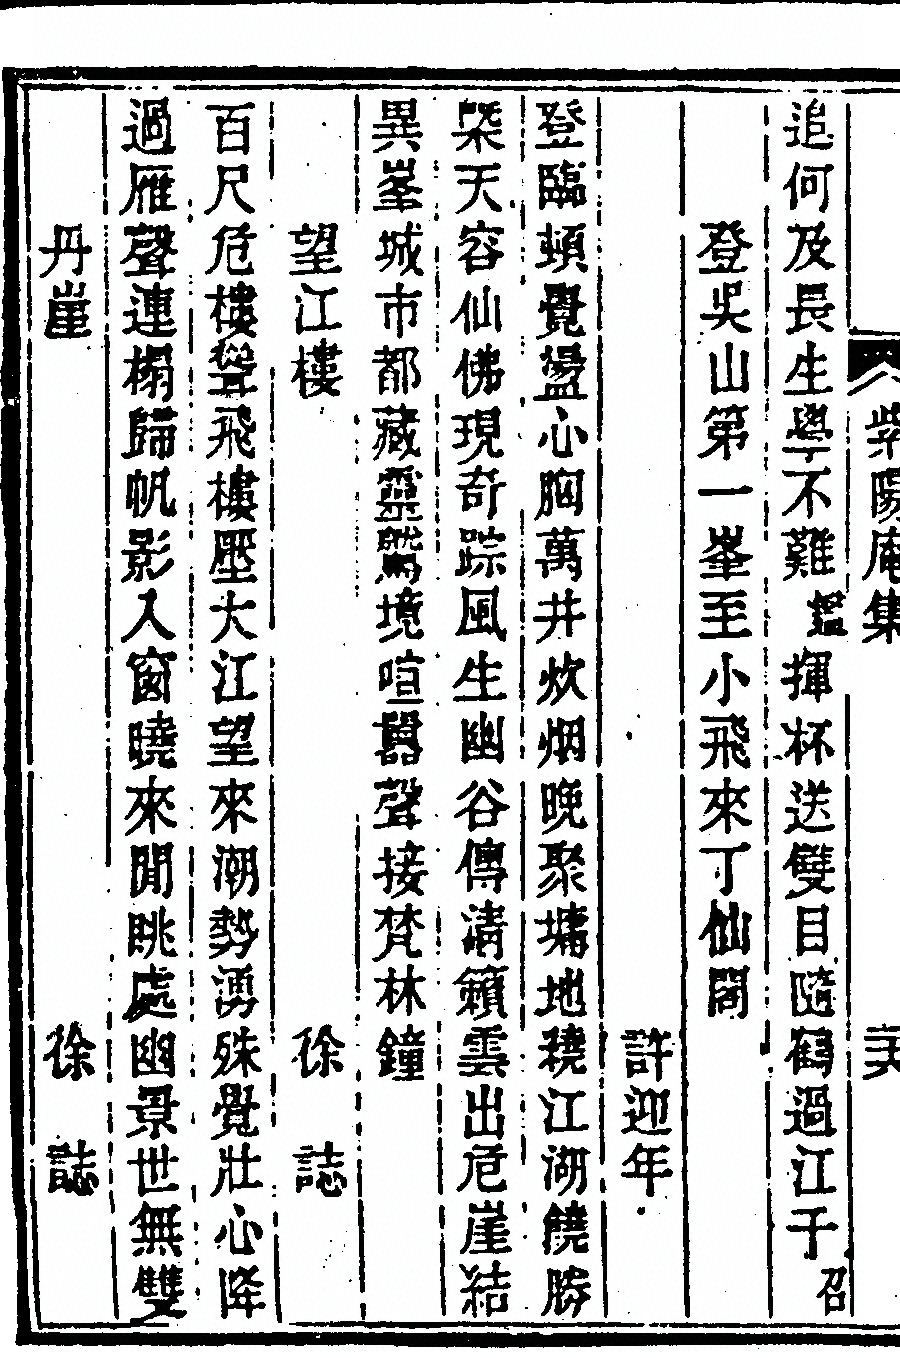 紫陽庵集
追何及長生學不難鑑揮杯送雙目隨鶴過江干召
登吳山第一峯至小飛來丁仙閣
許迎年
登臨頓覺盪心胸萬井炊烟晚聚墉地繞江湖饒勝
槩天容仙佛現奇踪風生幽谷傳清籟雲出危崖結
異峯城市都藏靈鷲境喧囂聲接梵林鐘
望江樓 徐誌
百尺危樓聳飛樓壓大江望來潮勢湧殊覺壯心降
過雁聲連榻歸帆影入窗曉來閒眺處幽景世無雙
丹崖 徐誌